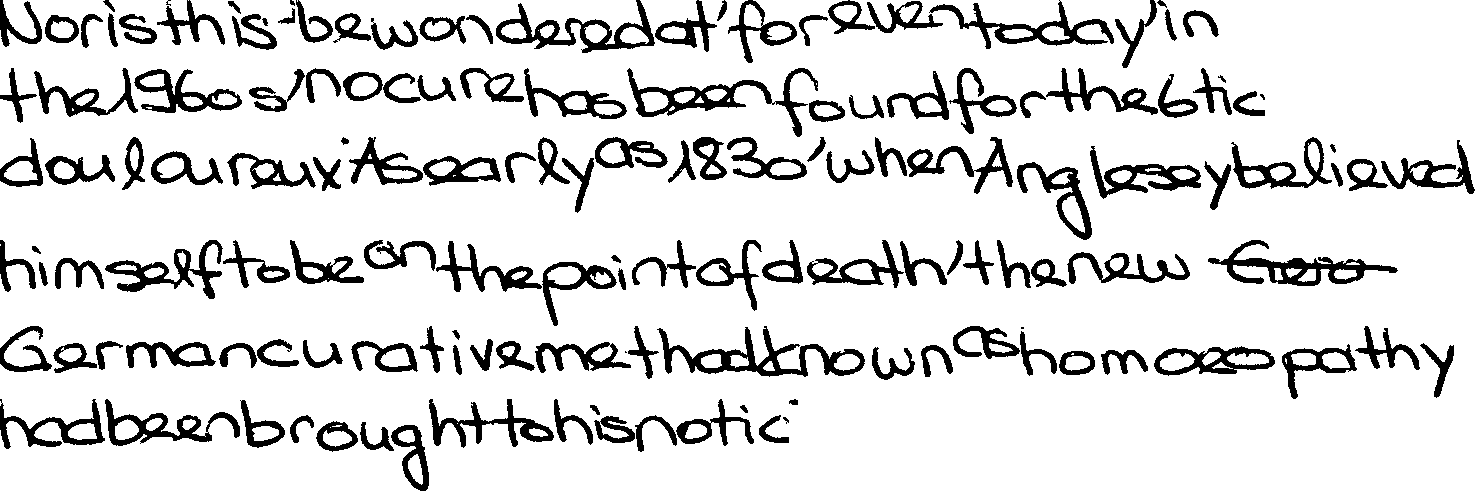 Nor is this be wondered at, for even today, in
the 1960s, no cure has been found for the 6tic
douloureux. As early as 1830, when Anglesey believed
himself to be on the point of death, the new
German curative method known as homoeopathy
had been brought to his notic.